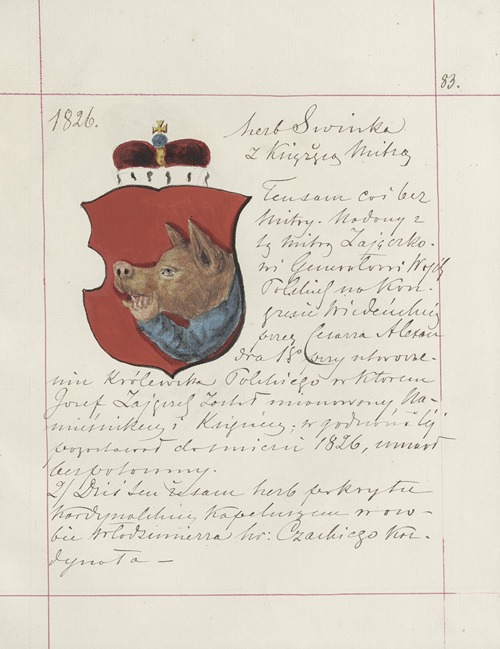 83.
1826.
herb Swinka
z Książęcą Mitrą
Tensam coś bez
Mitry. Nadany z
tą Mitrą Zajączko-
wi Generałowi Wojsk
Polskich na Kon-
gresie Wiedeńskim
przez Cesarza Alexan
dra 1go przy utworze-
niu Królewstwa Polskiego w ktorem
Josef Zajączek został mianowany Na-
miestnikiem i Księciem; w godności tej
pozostawał do śmierci 1826, umarł
bezpotomny.
2/ Dziś ten że sam herb pokryty
Kardynalskim Kapeluszem w oso-
bie Włodzimierza hr: Czackiego Kar-
dynała —